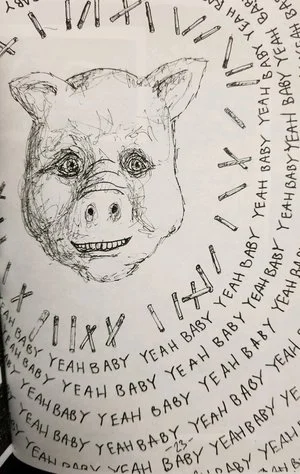 BABY
YEAH BABY YEAH BABY YEAH BABY YEAH BABY YEAH BABY YEAH BABY YEAH BABY YEAH BABY
YEAH BABY YEAH BABY YEAH BABY YEAH BABY YEAH BABY YEAH BABY YEAH BABY
YEAH BABY YEAH BABY YEAH BABY YEAH BABY YEAH BABY
YEAH BABY YEAH BABY YEAH BABY YEAH BABY
YEAH BABY YEAH BABY YEAH BABY YE
-23-